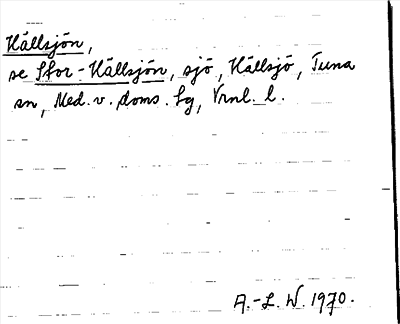 Hällsjön,
se Stor-Hällsjön, sjö, Hällsjö, Tuna
sn, Med. v. doms. sg, Vrnl. l.
A.-L. W. 1970.